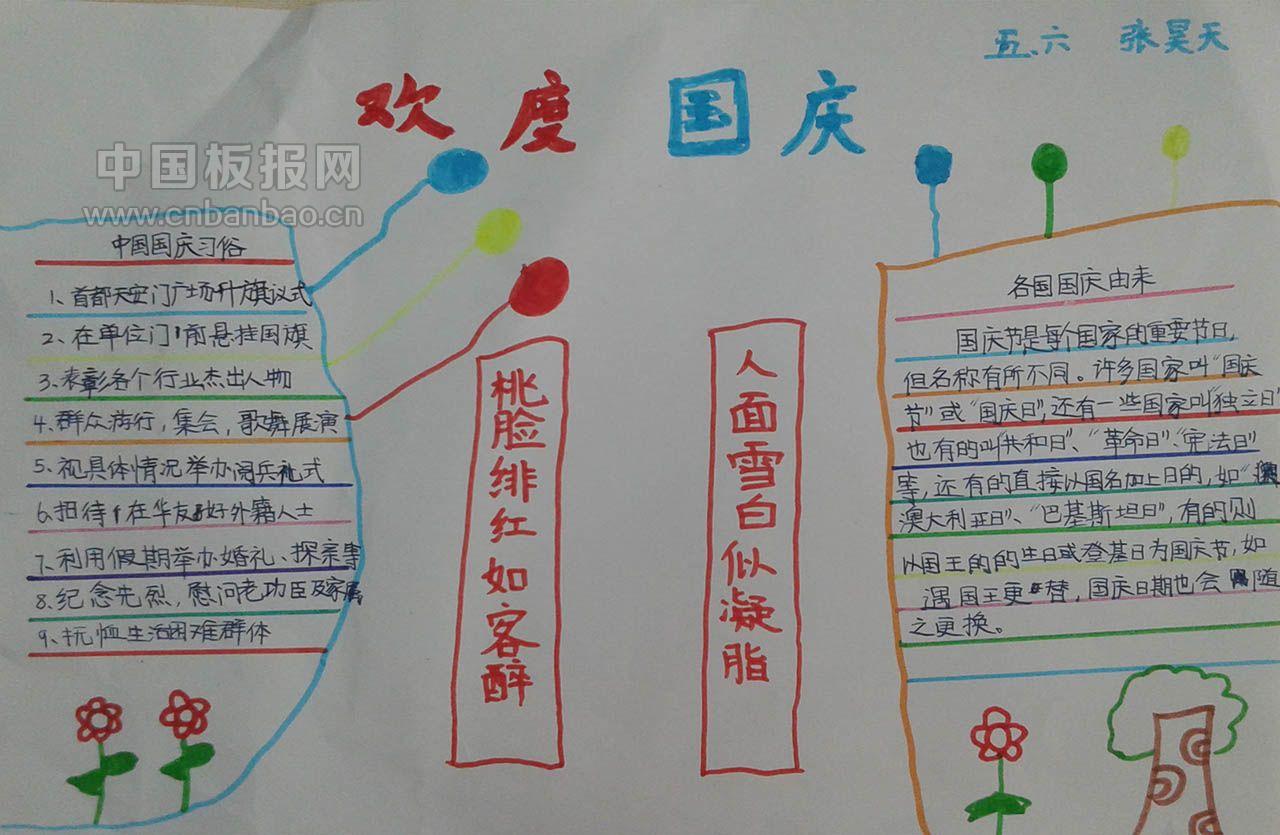 五.六 张昊天
欢度国庆
中国板报网
www.cnbanbao.cn
中国国庆习俗
1、首都天安门广场升旗议式
2、在单位门前悬挂国旗
3、表彰各个行业杰出人物
4、群众游行，集会，歌舞展演
5、视具体情况举办阅兵礼式
6、招待在华友好外籍人士
7、利用假期举办婚礼、探亲事
8、纪念先烈，慰问老功臣及家属
9、抚恤生活困难群体
桃脸绯红如客醉
人面雪白似凝脂
各国国庆由来
国庆节是每个国家的重要节日，
但名称有所不同。许多国家叫“国庆
节”或“国庆日”，还有一些国家叫“独立日”
也有的叫共和日”、“革命日”、“宪法日”
等，还有的直接以国名加上日的，如“
澳大利亚日”、“巴基斯坦日”，有的则
以国王的的生日或登基日为国庆节，如
遇国王更替，国庆日期也会随
之更换。